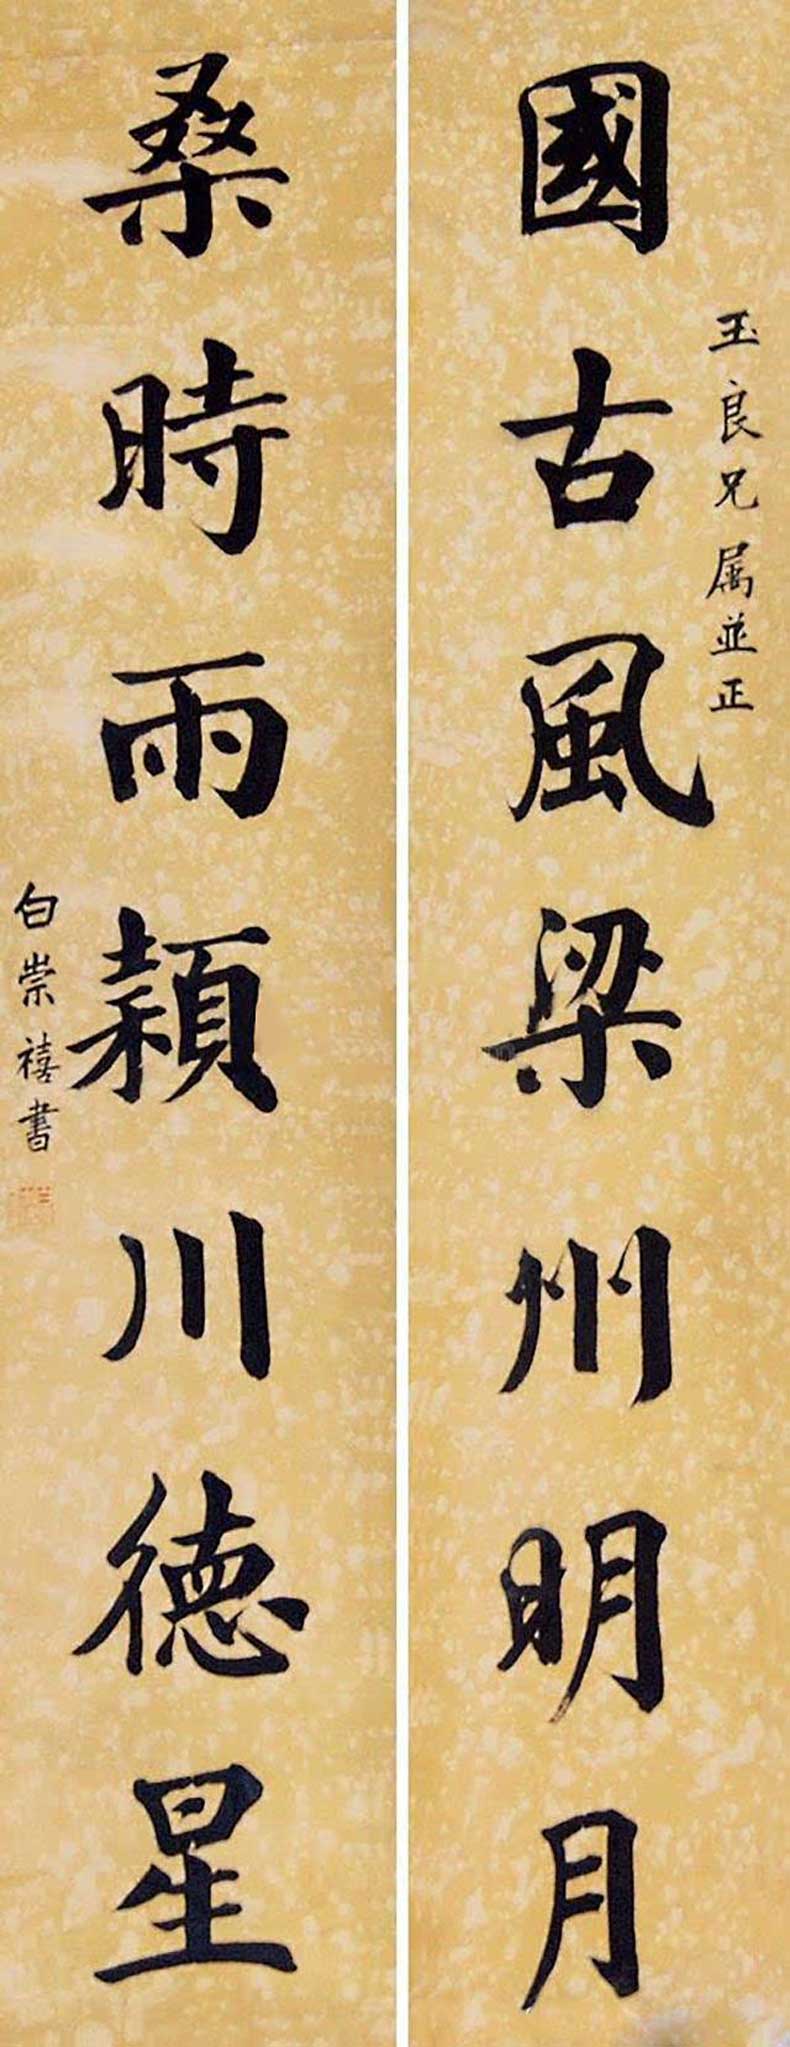 玉良兄属並正
國古風梁州明月
桑時雨頴川徳星
白崇禧書